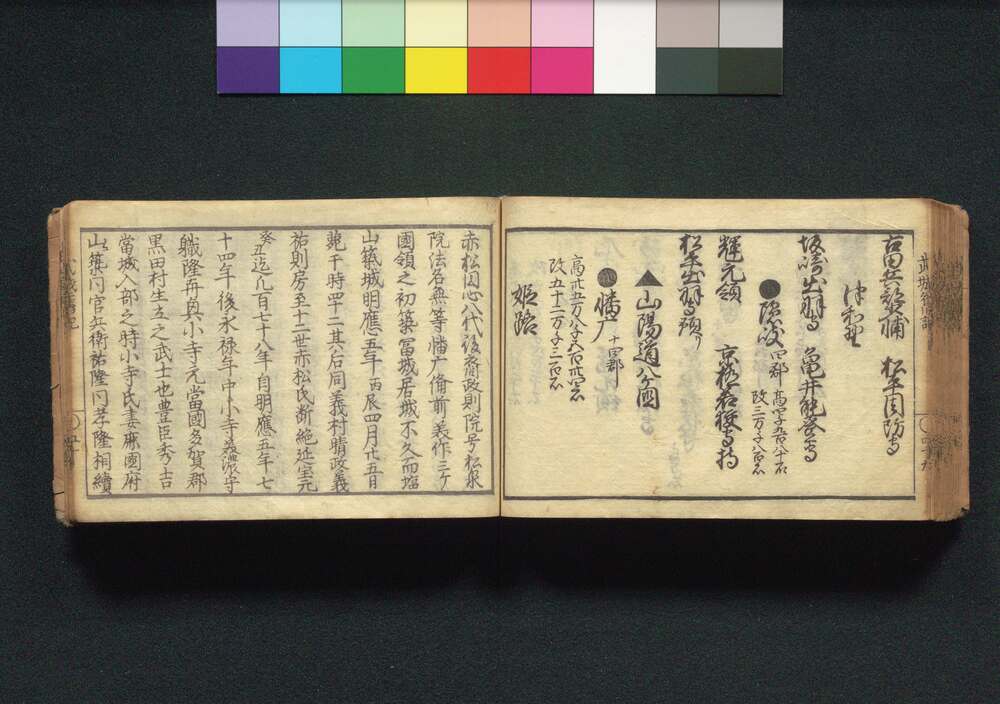 古田兵部少輔 松平周防守
津和野
坂崎出羽守 亀井能登守
隠岐 四郡
輝元領 京極若狭守持
松平出羽守預り
▲山陽道八ヶ国
播广 十四郡
高卅五万八千八百卅四石
改五十二万千三百石
姫路
赤松円心八代後裔政則院号松泉
院法名無等播广備前美作三ヶ
国領之初築當城居城不久而塩
山築城明應五年丙辰四月廿五日
薨于時四十二其后同義村晴政義
祐則房至十二世赤松氏断絶延宝元
癸丑迄凡百七十八年自明應五年七
十四年後永禄年中小寺美濃守
職隆并眞小寺元當國多賀郡
黒田村生立之武士也豊臣秀吉
當城入部之時小寺氏妻麻國府
山築同官兵衛祐隆同孝隆相續